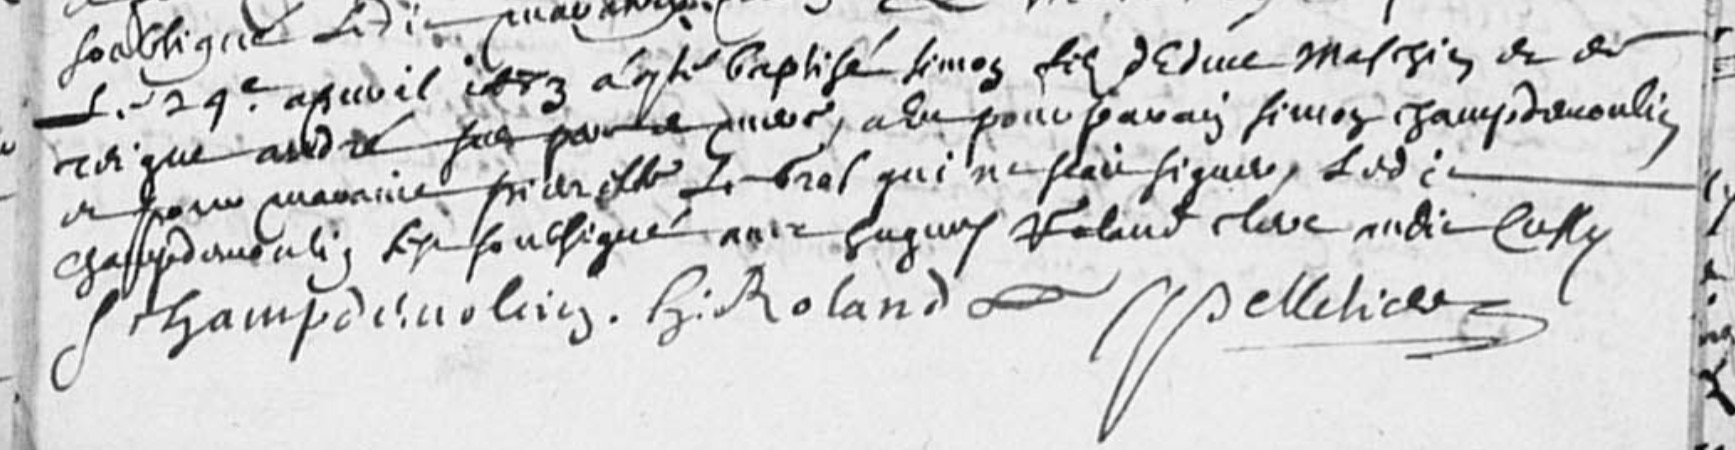 soubsigné Led.
Le 29e. apuril 1673 a esté baptisé simon filz d'Edme Maschin et de
reigne andré ses pere et mere, a Eu pour parain simon champdemoulin
et pour maraine pierrette Le bral qui ne scait signer, Led.
champdemoulin s'est soubsigné avec hugues Roland clerc audit Cussy
S champdemolin. h. Roland Pelletier